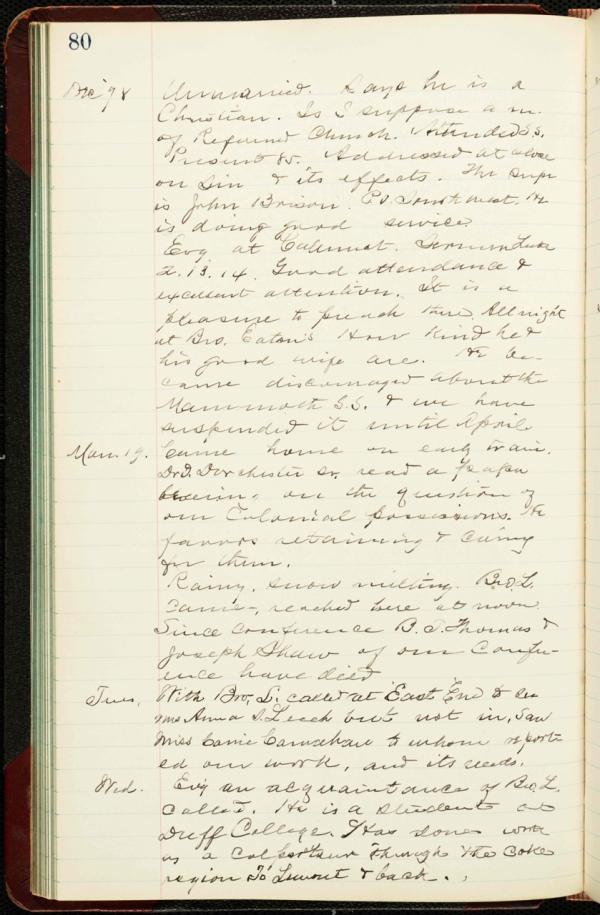 80
Dec '98 Unmarried. Says he is a
Christian. Is I suppose a m.
of Reformed Church. Attended S.S.
Present 85. Addressed at close
on Sin & its effects. The Supr
is John Brison. P.O. Smock west. He
is doing good service.
Evg at Calumet. Sermon Luke
2. 13. 14. Good attendance &
excellent attention. It is a
pleasure to preach there. All night
at Bro. Eaton's How kind he &
his good wife are. He be-
came discouraged about the
Mammoth S.S. & we have
suspended it until April
Mon. 19. Came home on early train.
Dr D. Dorchester Sr. read a paper
on the question of
our Colonial possessions. He
favors retaining & caring
for them.
Rainy. Snow melting. Bro. L.
came, reached here at noon.
Since Conference B. T. Thomas &
Joseph Shaw of our Confer-
ence have died
Tues. With Bro. L. called at East End to see
Miss Anna S. Leech but not in, Saw
Miss Carrie Carnahan to whom report-
ed our work, and its needs.
Wed. Evg an acquaintance of Bro. L.
called. He is a student at
Duff College. Has done work
as a colporteur through the Coke
region to & back.